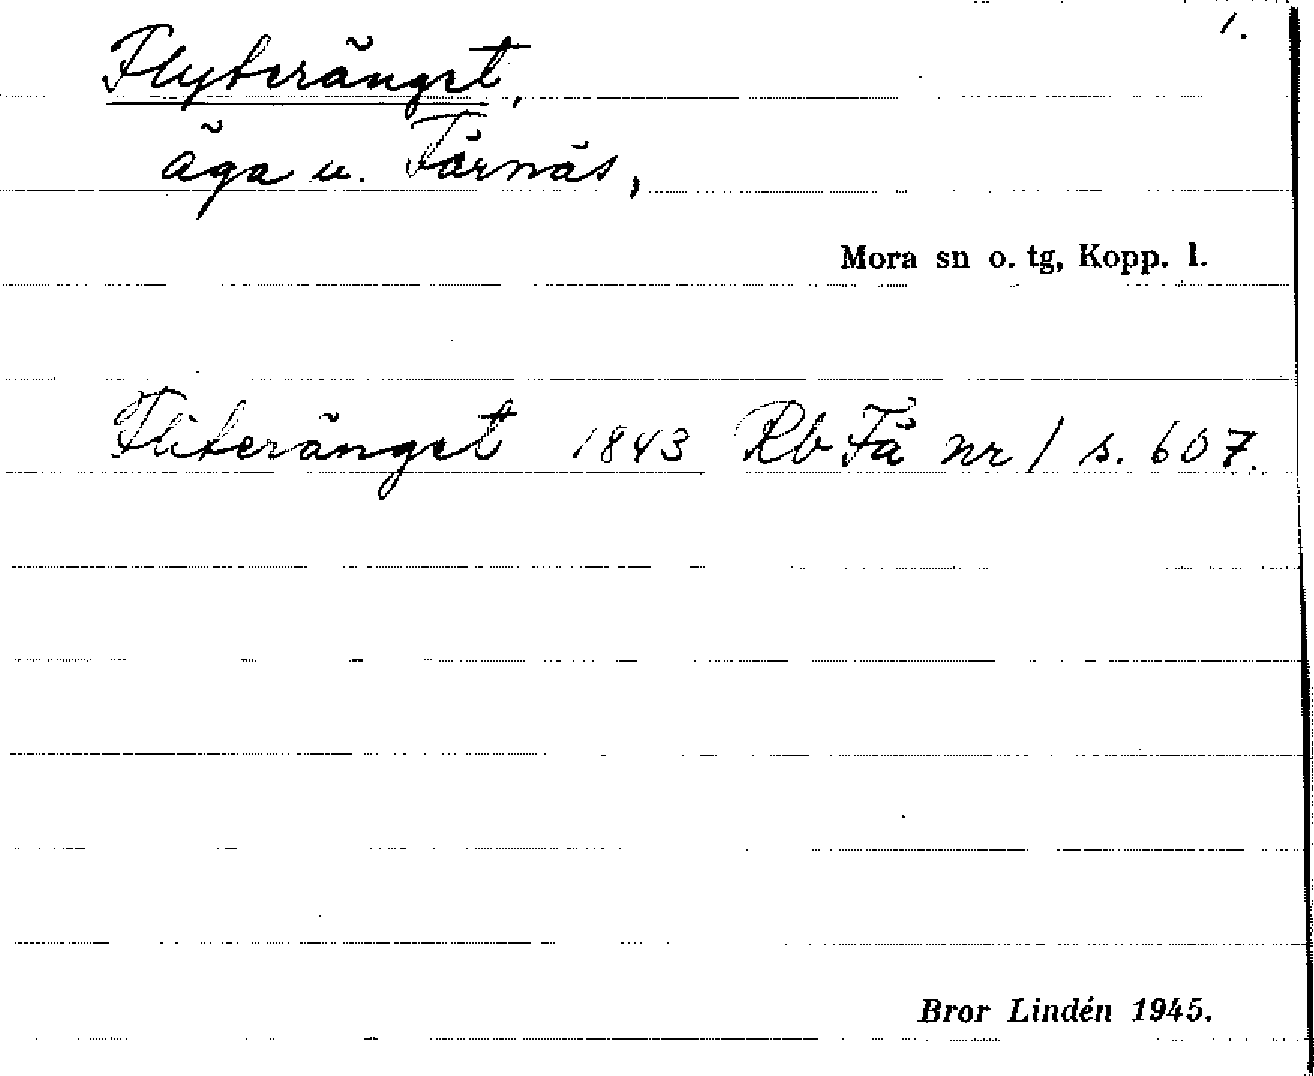 1.
Flyteränget,
äga u. Färnäs,
Mora sn o. tg, Kopp. l.
Fliteränget 1843 Rb Fä nr 1 s. 607.
Bror Lindén 1945.